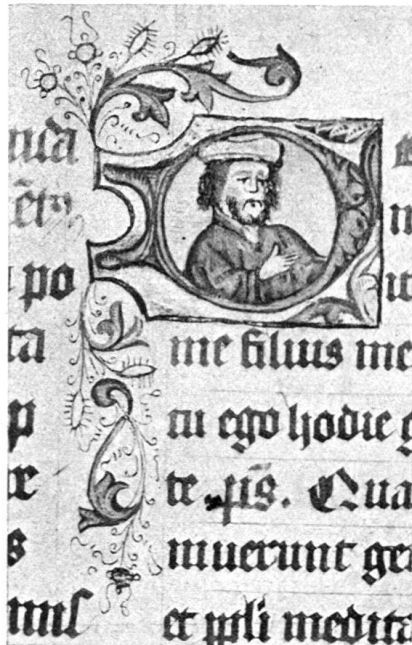 po
ta
p
s
D
n
it
me filius me
tu ego hodie g
te. p̄s. Qua
muerunt ge
et ppli medita